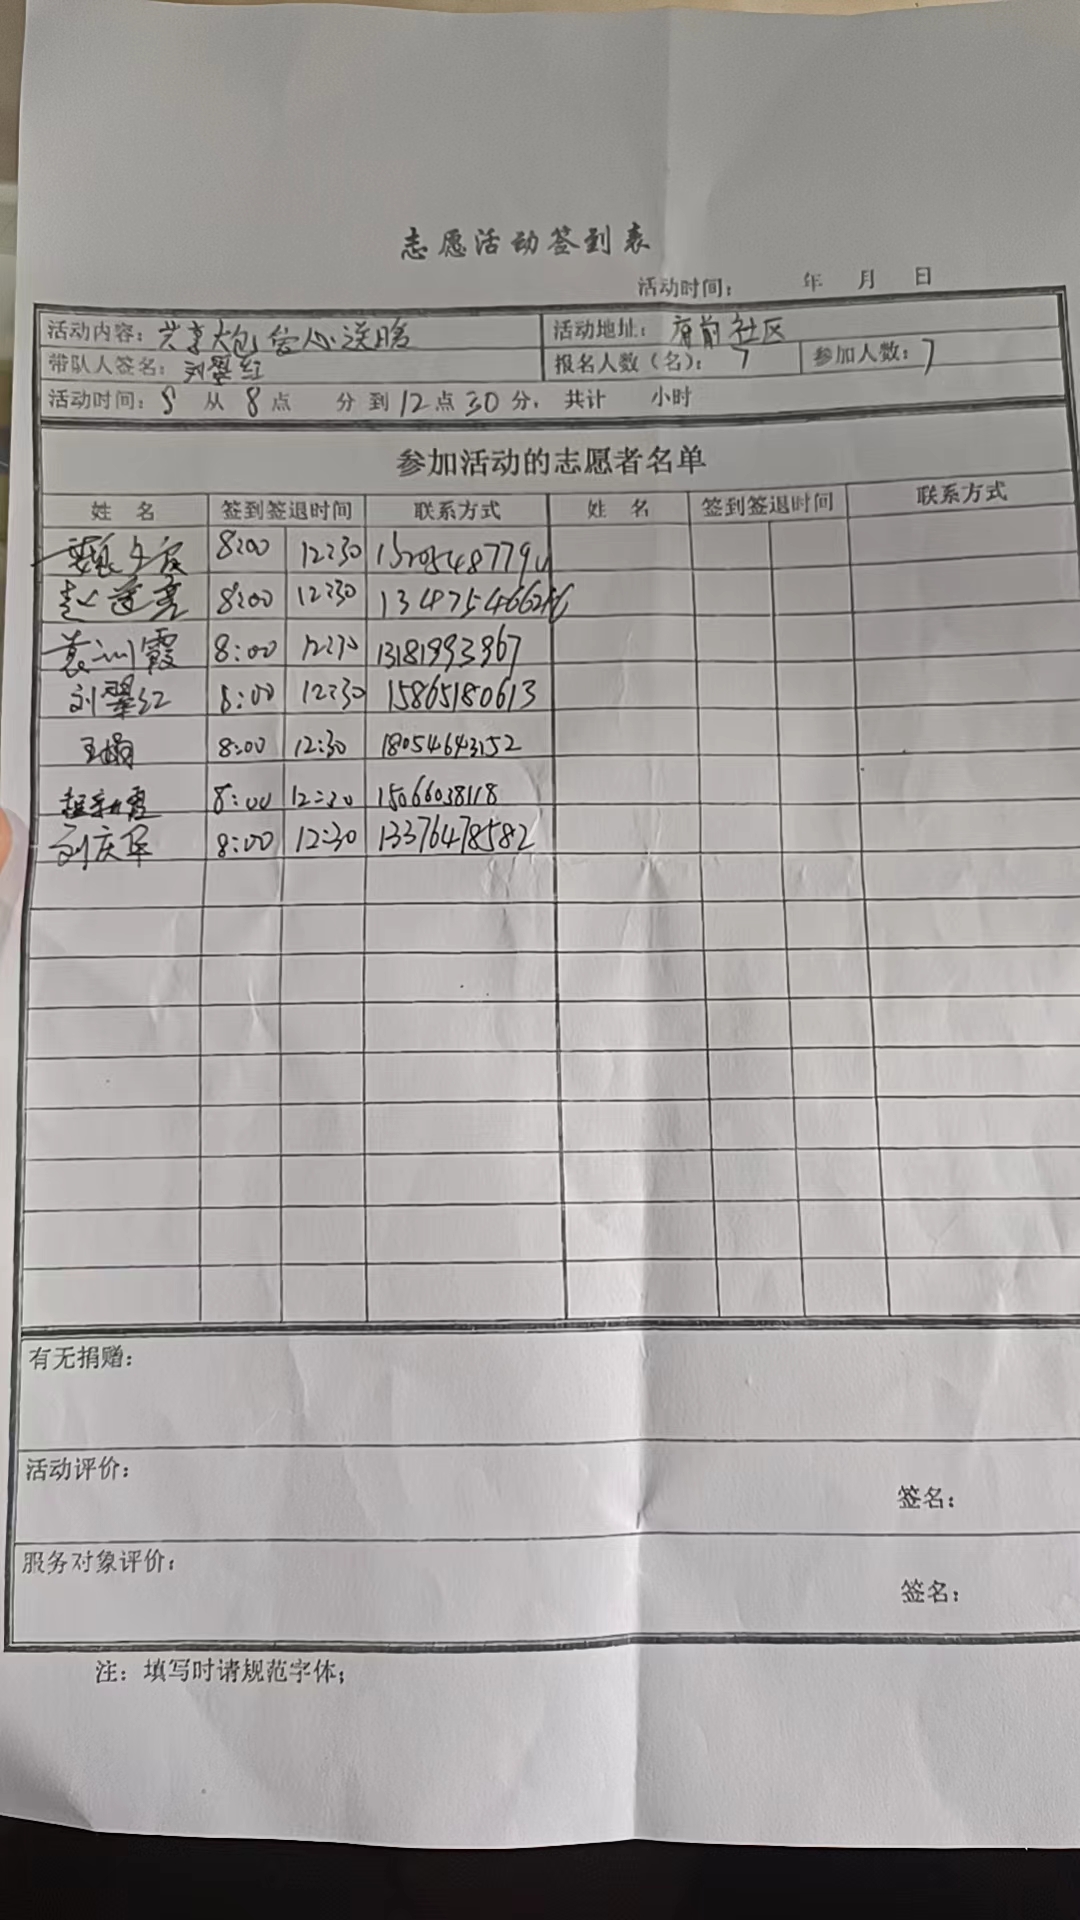 志愿活动签到表
活动时间： 年 月 日
活动内容：共享大包爱心送暖 活动地址：府前社区
带队人签名：刘翠红 报名人数（名）：7 参加人数：7
活动时间：8 从 8 点 分到 12 点 30 分，共计 小时
参加活动的志愿者名单
姓 名 签到签退时间 联系方式 姓 名 签到签退时间 联系方式
8:00 12:30
赵莲亮 8:00 12:30
袁训霞 8:00 12:30 13181993967
刘翠红 8:00 12:30 15865180613
王娟 8:00 12:30 18054643152
8:00 12:30 15066038118
刘庆军 8:00 12:30 13376478582
有无捐赠：
活动评价：
签名：
服务对象评价：
签名：
注：填写时请规范字体；